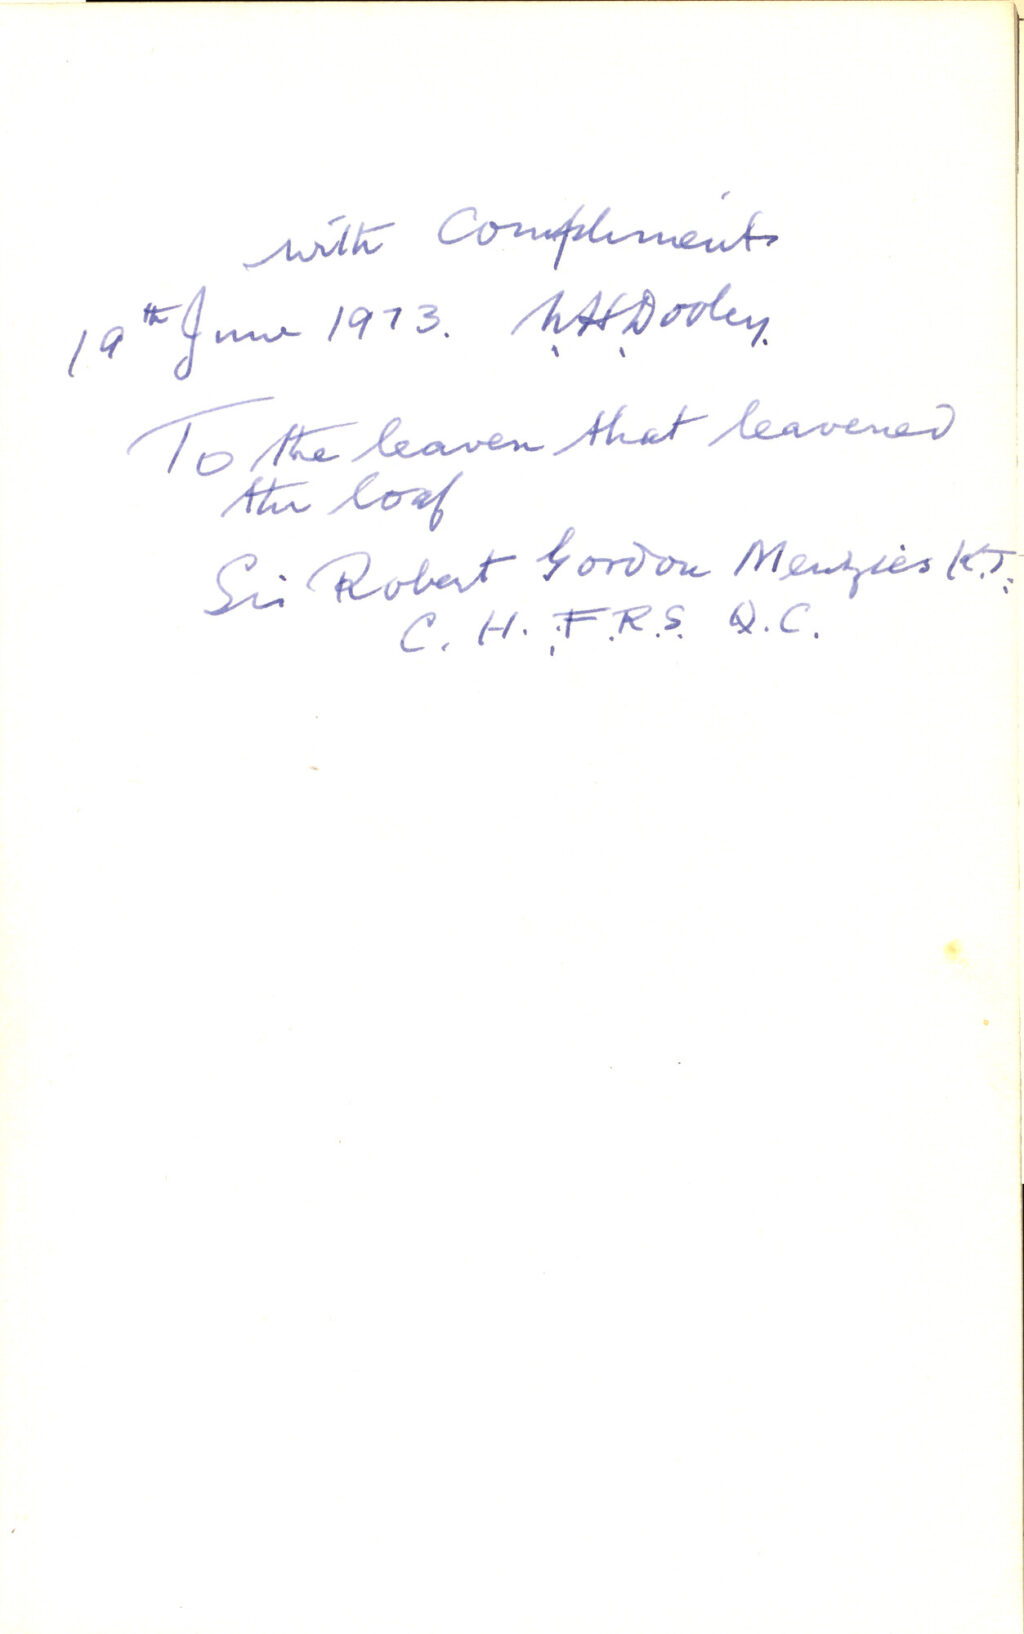 with Compliments
19th June 1973. N.H.Dooley.
To the leaven that leavened
the loaf
Sir Robert Gordon Menzies K.T.
C. H. F.R.S. Q.C.